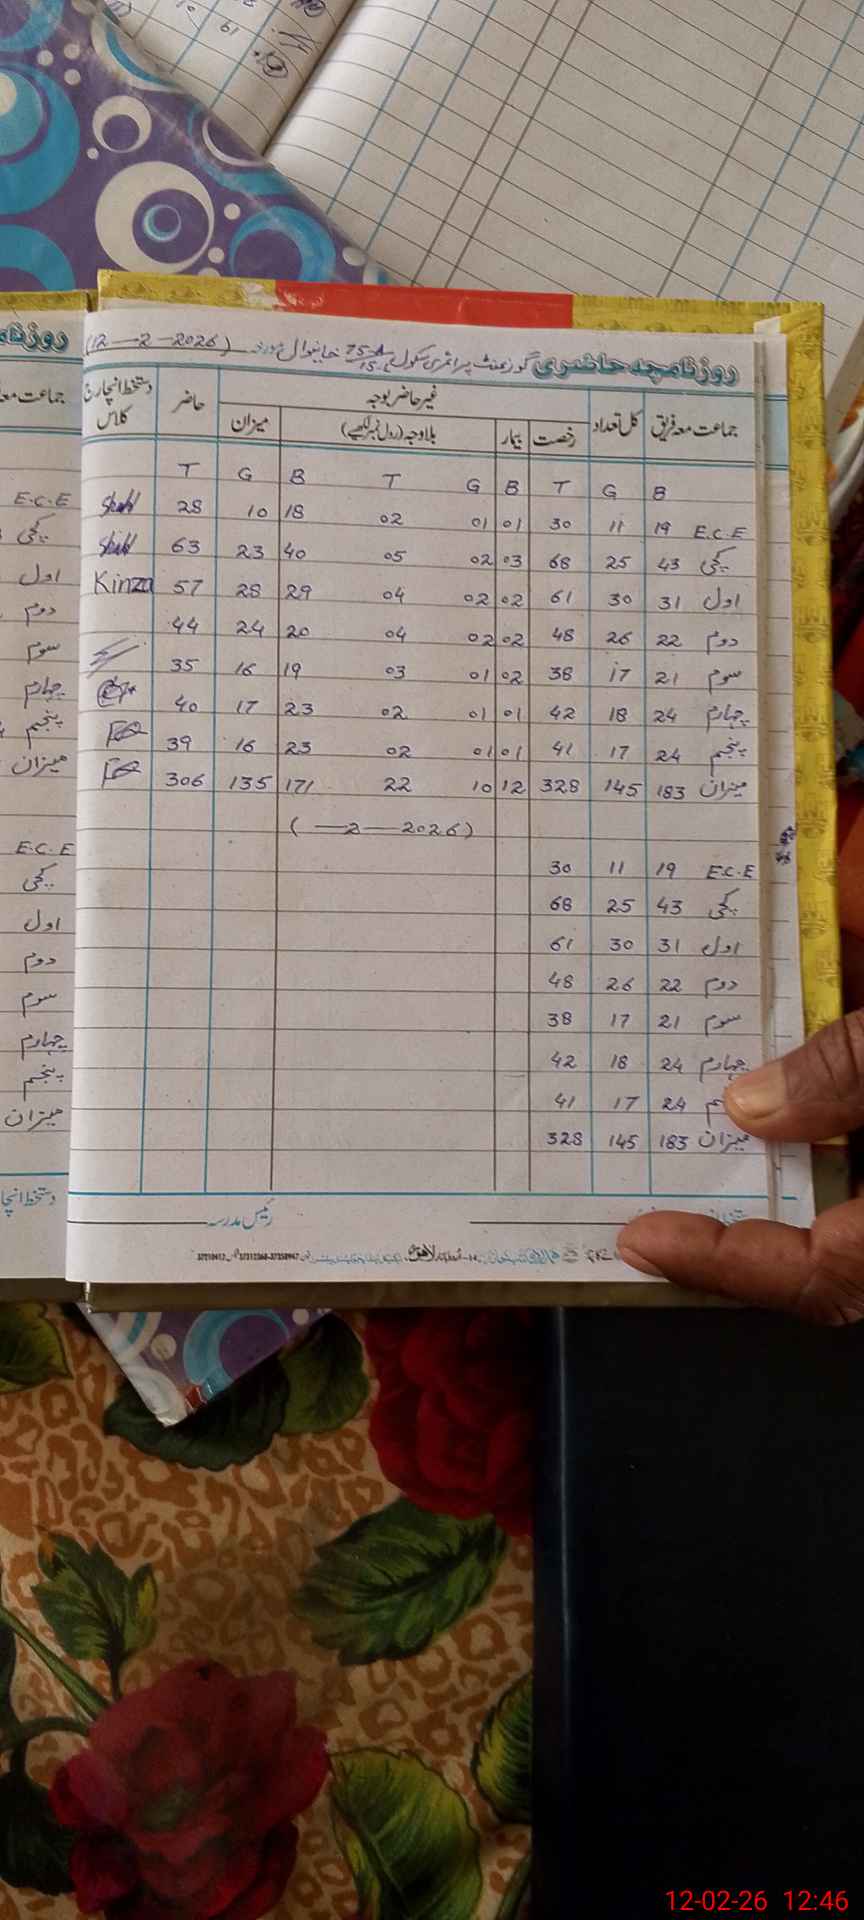 روزنامچہ حاضری گورنمنٹ پرائمری سکول 75-A/15-L خانیوال مورخہ (12-2-2026)
جماعت معہ فریق کل تعداد غیر حاضر بوجہ حاضر دستخط انچارج کلاس
رخصت بیمار بلاوجہ (رول نمبر لکھیے) میزان
B G T B G T B G T
E.C.E 19 11 30 01 01 02 18 10 28
کچی 43 25 68 03 02 05 40 23 63
اول 31 30 61 02 02 04 29 28 57 Kinza
دوم 22 26 48 02 02 04 20 24 44
سوم 21 17 38 02 01 03 19 16 35
چہارم 24 18 42 01 01 02 23 17 40
پنجم 24 17 41 01 01 02 23 16 39
میزان 183 145 328 12 10 22 171 135 306
( -2-2026)
E.C.E 19 11 30
کچی 43 25 68
اول 31 30 61
دوم 22 26 48
سوم 21 17 38
چہارم 24 18 42
24 17 41
میزان 183 145 328
رئیس مدرسہ
روزنامچہ
جماعت معہ
E.C.E
کچی
اول
دوم
سوم
چہارم
پنجم
میزان
E.C.E
کچی
اول
دوم
سوم
چہارم
پنجم
میزان
دستخط انچا
12-02-26 12:46